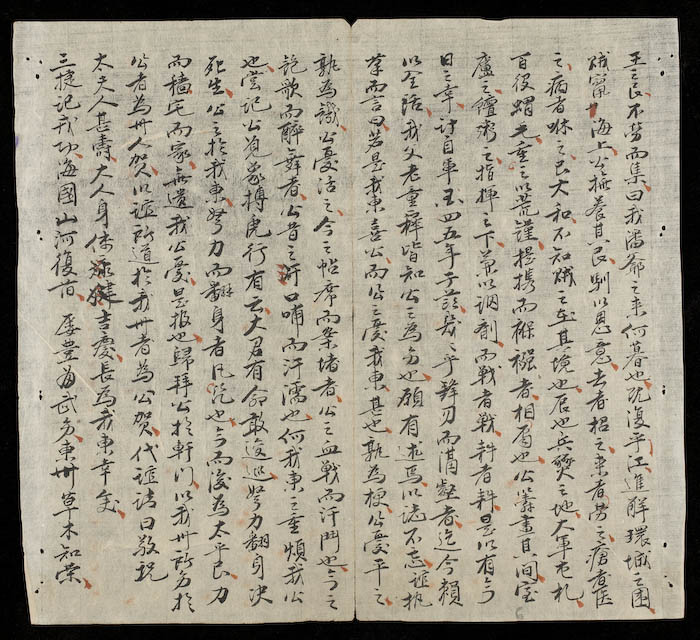 王之良不勞而集曰我潘爺之来何暮也既復平江進解環城之圍
賊竄海上公撫養其民馴以恩意去者招之来者勞之瘡者医
之病者咻之民大和不知賊之在其境也居也兵燹之地大軍屯札
百役蝟重之以荒饉提携而褓襁者相屬也公籌畫其間室
廬之饘粥之指揮之下萬以調劑而戰者戰耕者耕是以有今
日之幸計自軍至四五年于茲乎鋒刃而溝壑者迄今賴
以全活我父老童穉皆知公之為力也願有述焉以志不忘誼執
筆而言曰若是我東喜公而公之憂我東甚也孰為梗公憂平之
孰為饑公憂活之今之帖席而案堵者公之血戰而汗鬥也今之
謳歌而醉舞者公昔之口哺而汗濡也何我東之重煩我公
也嘗記公搏虎行有云大君有命敢逡巡努力翻身決
死生公之於我東努力而翻身者凡幾也今而後為太平民力
而穡宅而家無遺我公憂是報也歸拜公於軒门以我卅所为於
公者為卅人賀以誼所道於我卅者為公賀代誼請曰敬祝
太夫人甚壽大人身体康健吉慶長為我東幸矣
三捷記我功海國山河復舊 屡豐為武多東卅草木知榮